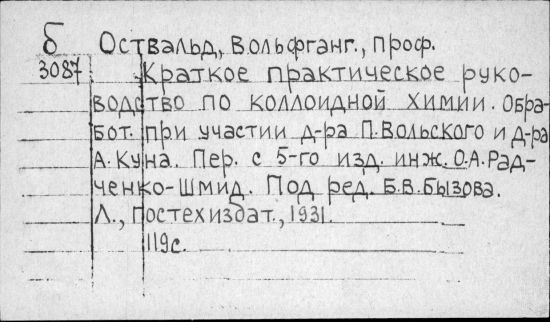 Б Оствальд, Вольфганг., проф.
3087 Краткое практическое руко-
водство по коллоидной химии. Обра-
бот. при участии д-ра П. Вольского и д-ра
А. Куна. Пер. с 5-го изд. инж. О.А. Рад-
ченко-Шмид. Под ред. Б.В. Бызова.
Л., Гостехиздат., 1931.
119 с.